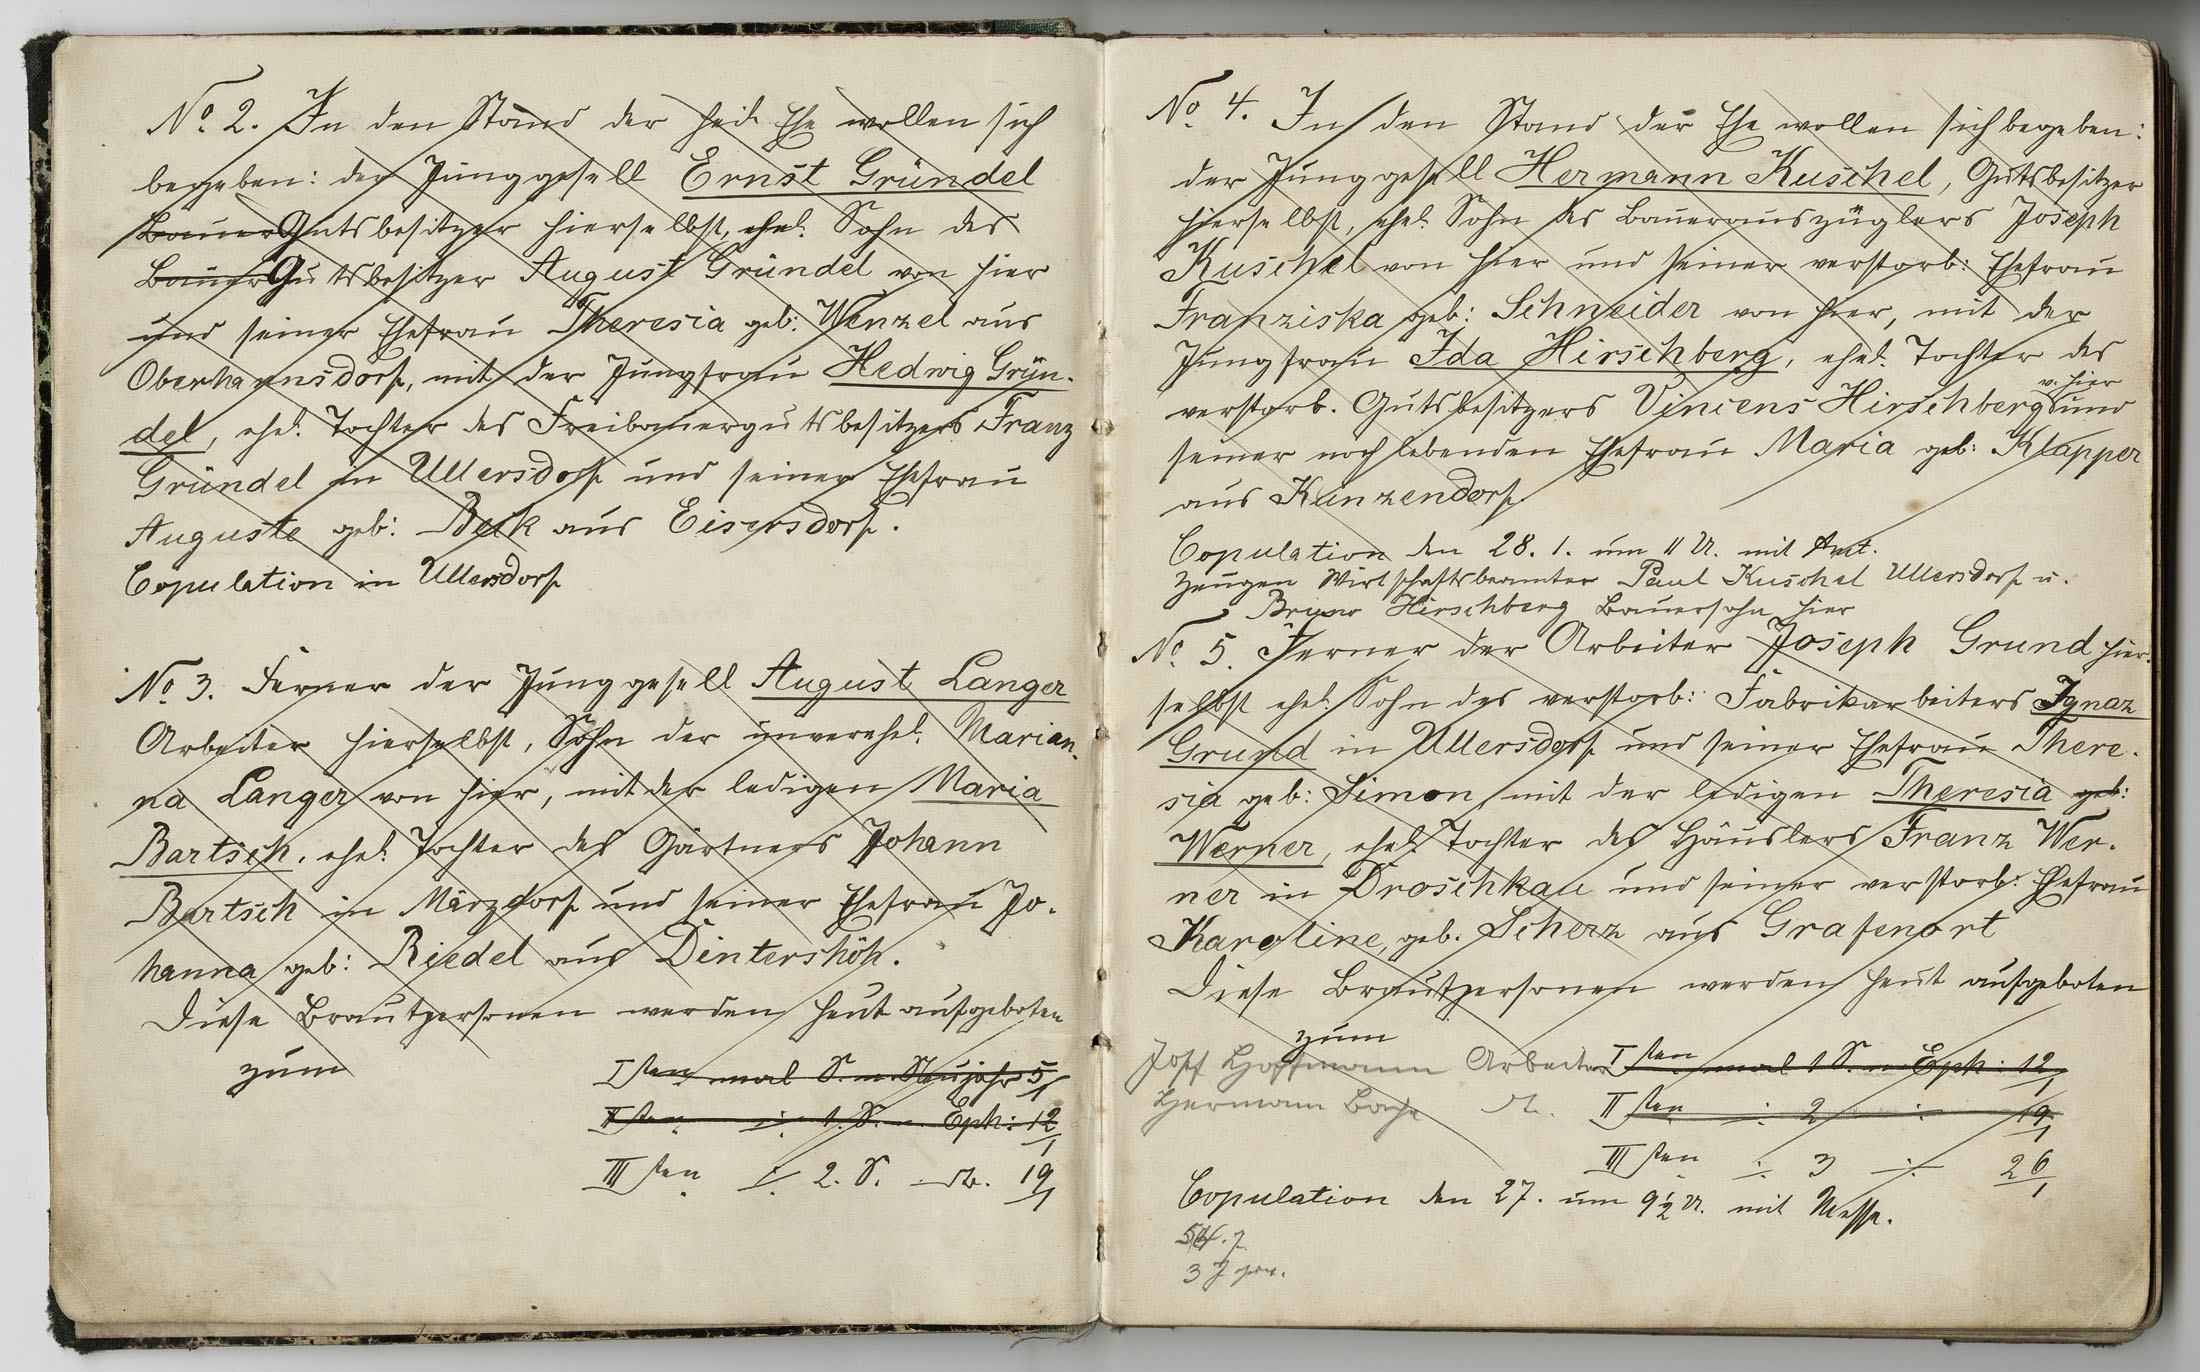 No. 2. In den Stand der heil. Ehe wollen sich
begeben: der Junggesell Ernst Gründel
Bauer Gutsbesitzer hierselbst, ehel. Sohn des
Bauer Gutsbesitzer August Gründel von hier
und seiner Ehefrau Theresia geb: Wenzel aus
Oberhannsdorf, mit der Jungfrau Hedwig Grün-
del, ehel. Tochter des Freibauergutsbesitzers Franz
Gründel in Ullersdorf und seiner Ehefrau
Auguste geb: Beck aus Eisersdorf.
Copulation in Ullersdorf
No. 3. Ferner der Junggesell August Langer
Arbeiter hierselbst, Sohn der unverehel. Marian-
na Langer von hier, mit der ledigen Maria
Bartsch, ehel. Tochter des Gärtners Johann
Bartsch in Märzdorf und seiner Ehefrau Jo-
hanna geb: Riedel aus Dintershöh.
Diese Brautpersonen werden heut aufgeboten
zum
I sten mal S. n. Neujahr 5/1
II ten " ÷ 1. S. n. Eph: 12/1
III ten " ÷ 2. S. do. 19/1
No. 4. In den Stand der Ehe wollen sich begeben:
der Junggesell Hermann Kuschel, Gutsbesitzer
hierselbst, ehel. Sohn des Bauerauszüglers Joseph
Kuschel von hier und seiner verstorb: Ehefrau
Franziska geb: Schneider von hier, mit der
Jungfrau Ida Hirschberg, ehel. Tochter des
verstorb. Gutsbesitzers Vincens Hirschberg v. hier und
seiner noch lebenden Ehefrau Maria geb: Klapper
aus Kunzendorf.
Copulation den 28. 1. um 11 U. mit Amt.
Zeugen Wirtschaftsbeamter Paul Kuschel Ullersdorf u.
Bruno Hirschberg Bauersohn hier
No. 5. Ferner der Arbeiter Joseph Grund hier-
selbst ehel. Sohn des verstorb: Fabrikarbeiters Ignaz
Grund in Ullersdorf und seiner Ehefrau There-
sia geb: Simon, mit der ledigen Theresia geb:
Werner, ehel. Tochter des Häuslers Franz Wer-
ner in Droschkau und seiner verstorb: Ehefrau
Karoline, geb. Scherz aus Grafenort
Diese Brautpersonen werden heut aufgeboten
zum
Josf Hoffmann Arbeiter I sten mal 1 S. n. Eph: 12/1
Hermann do. II ten ÷ 2 ÷ 19/1
III ten ÷ 3 ÷ 26/1
Copulation den 27. um 9 1/2 U. mit Messe.